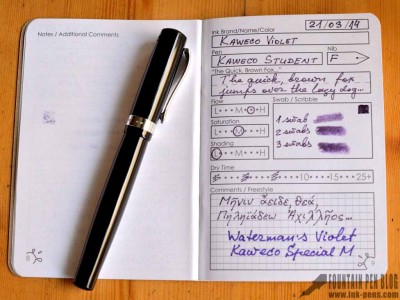 Notes / Additional Comments
21/03/14
Ink Brand/Name/Color
KAWECO VIOLET
Pen
KAWECO STUDENT
Nib
F
"The Quick, Brown Fox..."
The quick, brown fox
jumps over the lazy dog...
Flow
L M H
Saturation
L M H
Shading
L M H
Swab / Scribble
1 swab
2 swabs
3 swabs
Dry Time
10 15 25+
Comments / Freestyle
Μῆνιν ἄειδε, θεά,
Πηληϊάδεω Ἀχιλλῆος...
Waterman's Violet
Kaweco Special M
FOUNTAIN PEN BLOG
www.ink-pens.com